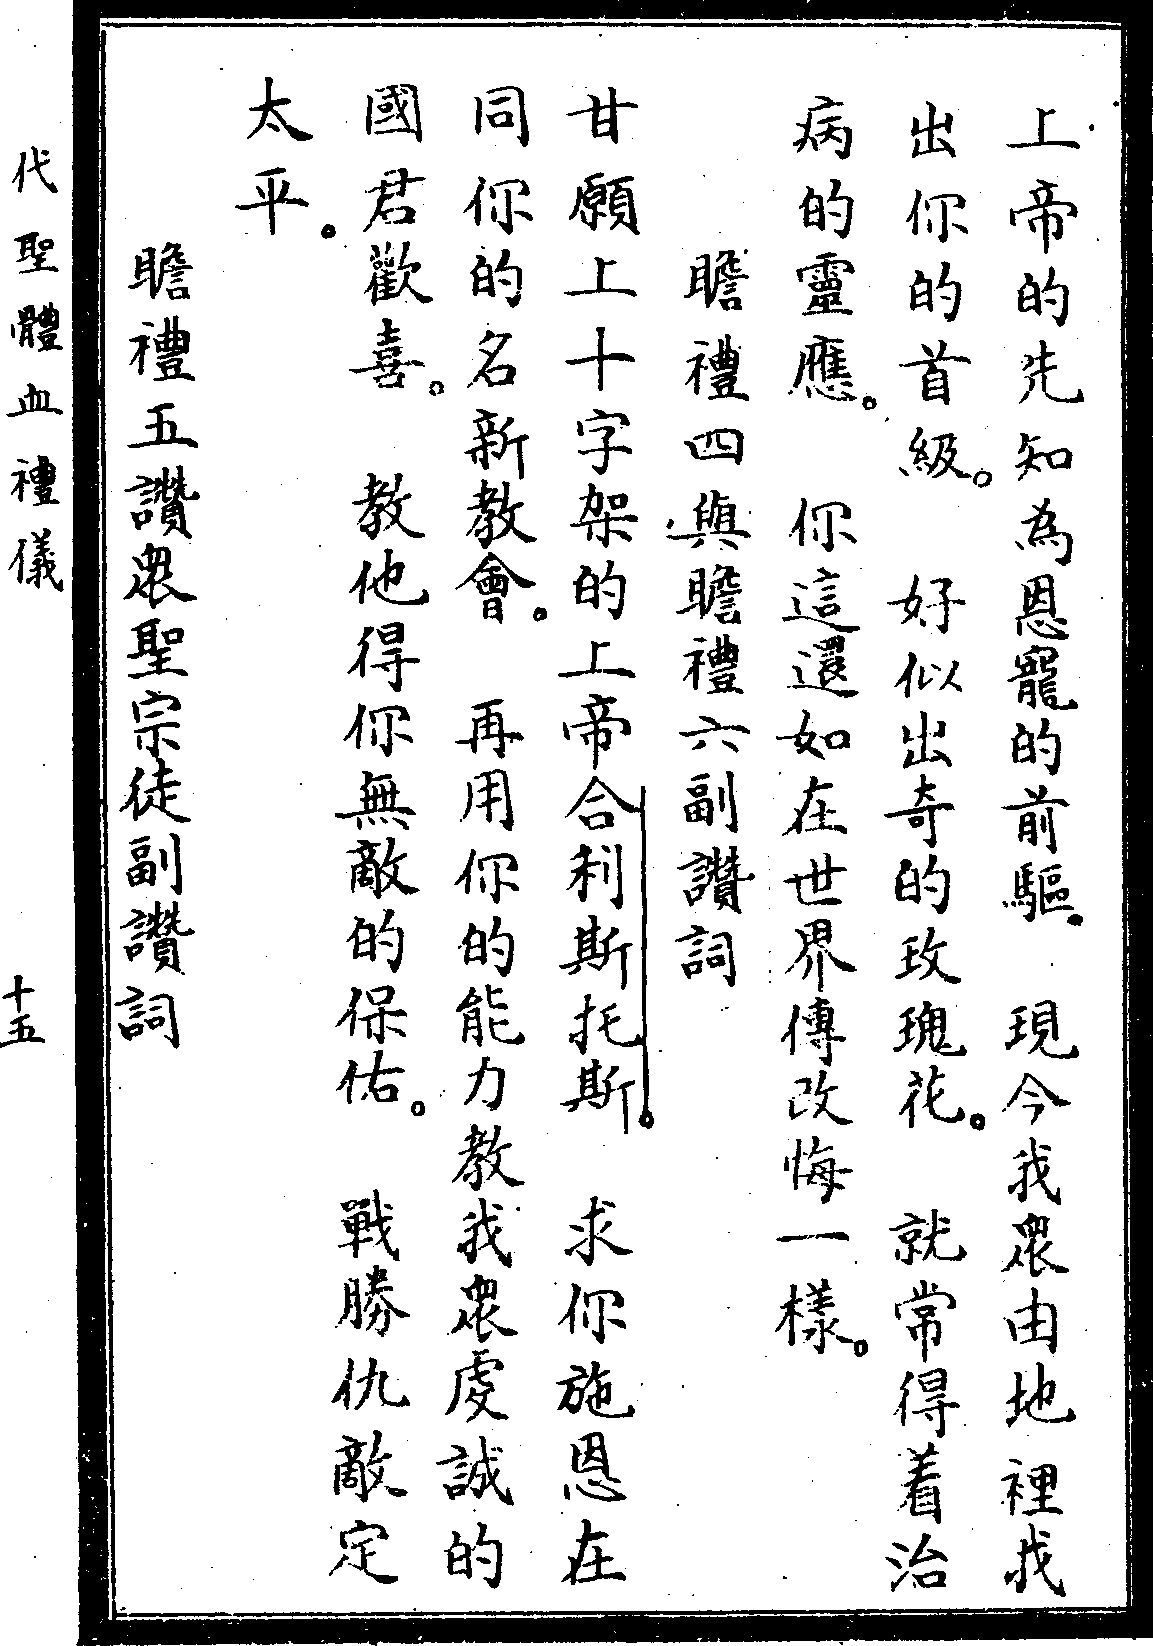 上帝的先知為恩寵的前驅。 現今我眾由地裡我
出你的首級。 好似出奇的玫瑰花。 就常得着治
病的靈應。 你這還如在世界傳改悔一樣。
瞻禮四與瞻禮六副讚詞
甘願上十字架的上帝合利斯托斯。 求你施恩在
同你的名新教會。 再用你的能力教我眾虔誠的
國君歡喜。 教他得你無敵的保佑。 戰勝仇敵定
太平。
瞻禮五讚眾聖宗徒副讚詞
代聖體血禮儀
十五